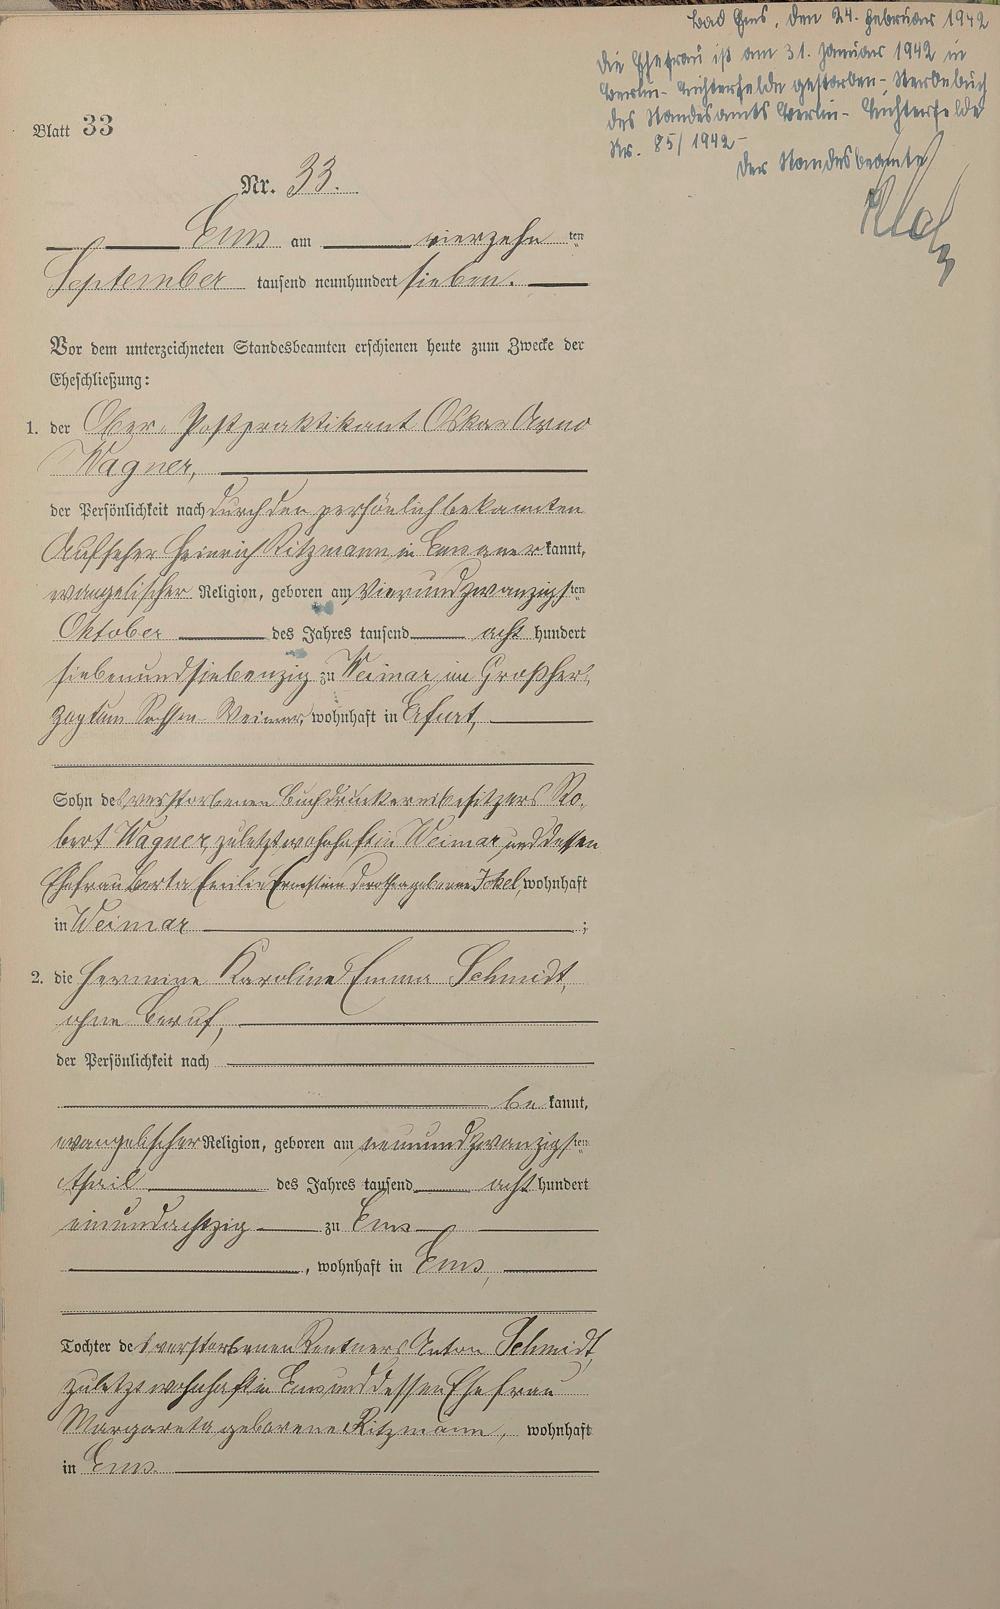 Bad Ems, den 24. Februar 1942
Die Ehefrau ist am 31. Januar 1942 in
Berlin-Lichterfelde gestorben - Sterbebuch
des Standesamts Berlin-Lichterfelde
Nr. 85/1942 -
Der Standesbeamte
Blatt 33
Nr. 33.
Ems am vierzehn ten
September tausend neunhundert sieben.
Vor dem unterzeichneten Standesbeamten erschienen heute zum Zwecke der
Eheschließung:
1. der Ober-Postpraktikant Oskar Arno
Wagner,
der Persönlichkeit nach durch den persönlich bekannten
Aufseher Heinrich Ritzmann in Ems aner kannt,
evangelischer Religion, geboren am vierundzwanzigs ten
Oktober des Jahres tausend acht hundert
siebenundsiebenzig zu Weimar im Großher-
zogtum Sachsen-Weimar, wohnhaft in Erfurt,
Sohn des verstorbenen Buchdruckereibesitzers Ro-
bert Wagner, zuletzt wohnhaft in Weimar und dessen
Ehefrau Berta Emilie Ernestine Dorothea geborene Ickel, wohnhaft
in Weimar ;
2. die Hermine Karoline Emma Schmidt,
ohne Beruf,
der Persönlichkeit nach
be kannt,
evangelischer Religion, geboren am neunundzwanzigs ten
April des Jahres tausend acht hundert
einundachtzig zu Ems
, wohnhaft in Ems,
Tochter des verstorbenen Rentners Anton Schmidt,
zuletzt wohnhaft in Ems und dessen Ehefrau
Margareta geborene Ritzmann, wohnhaft
in Ems